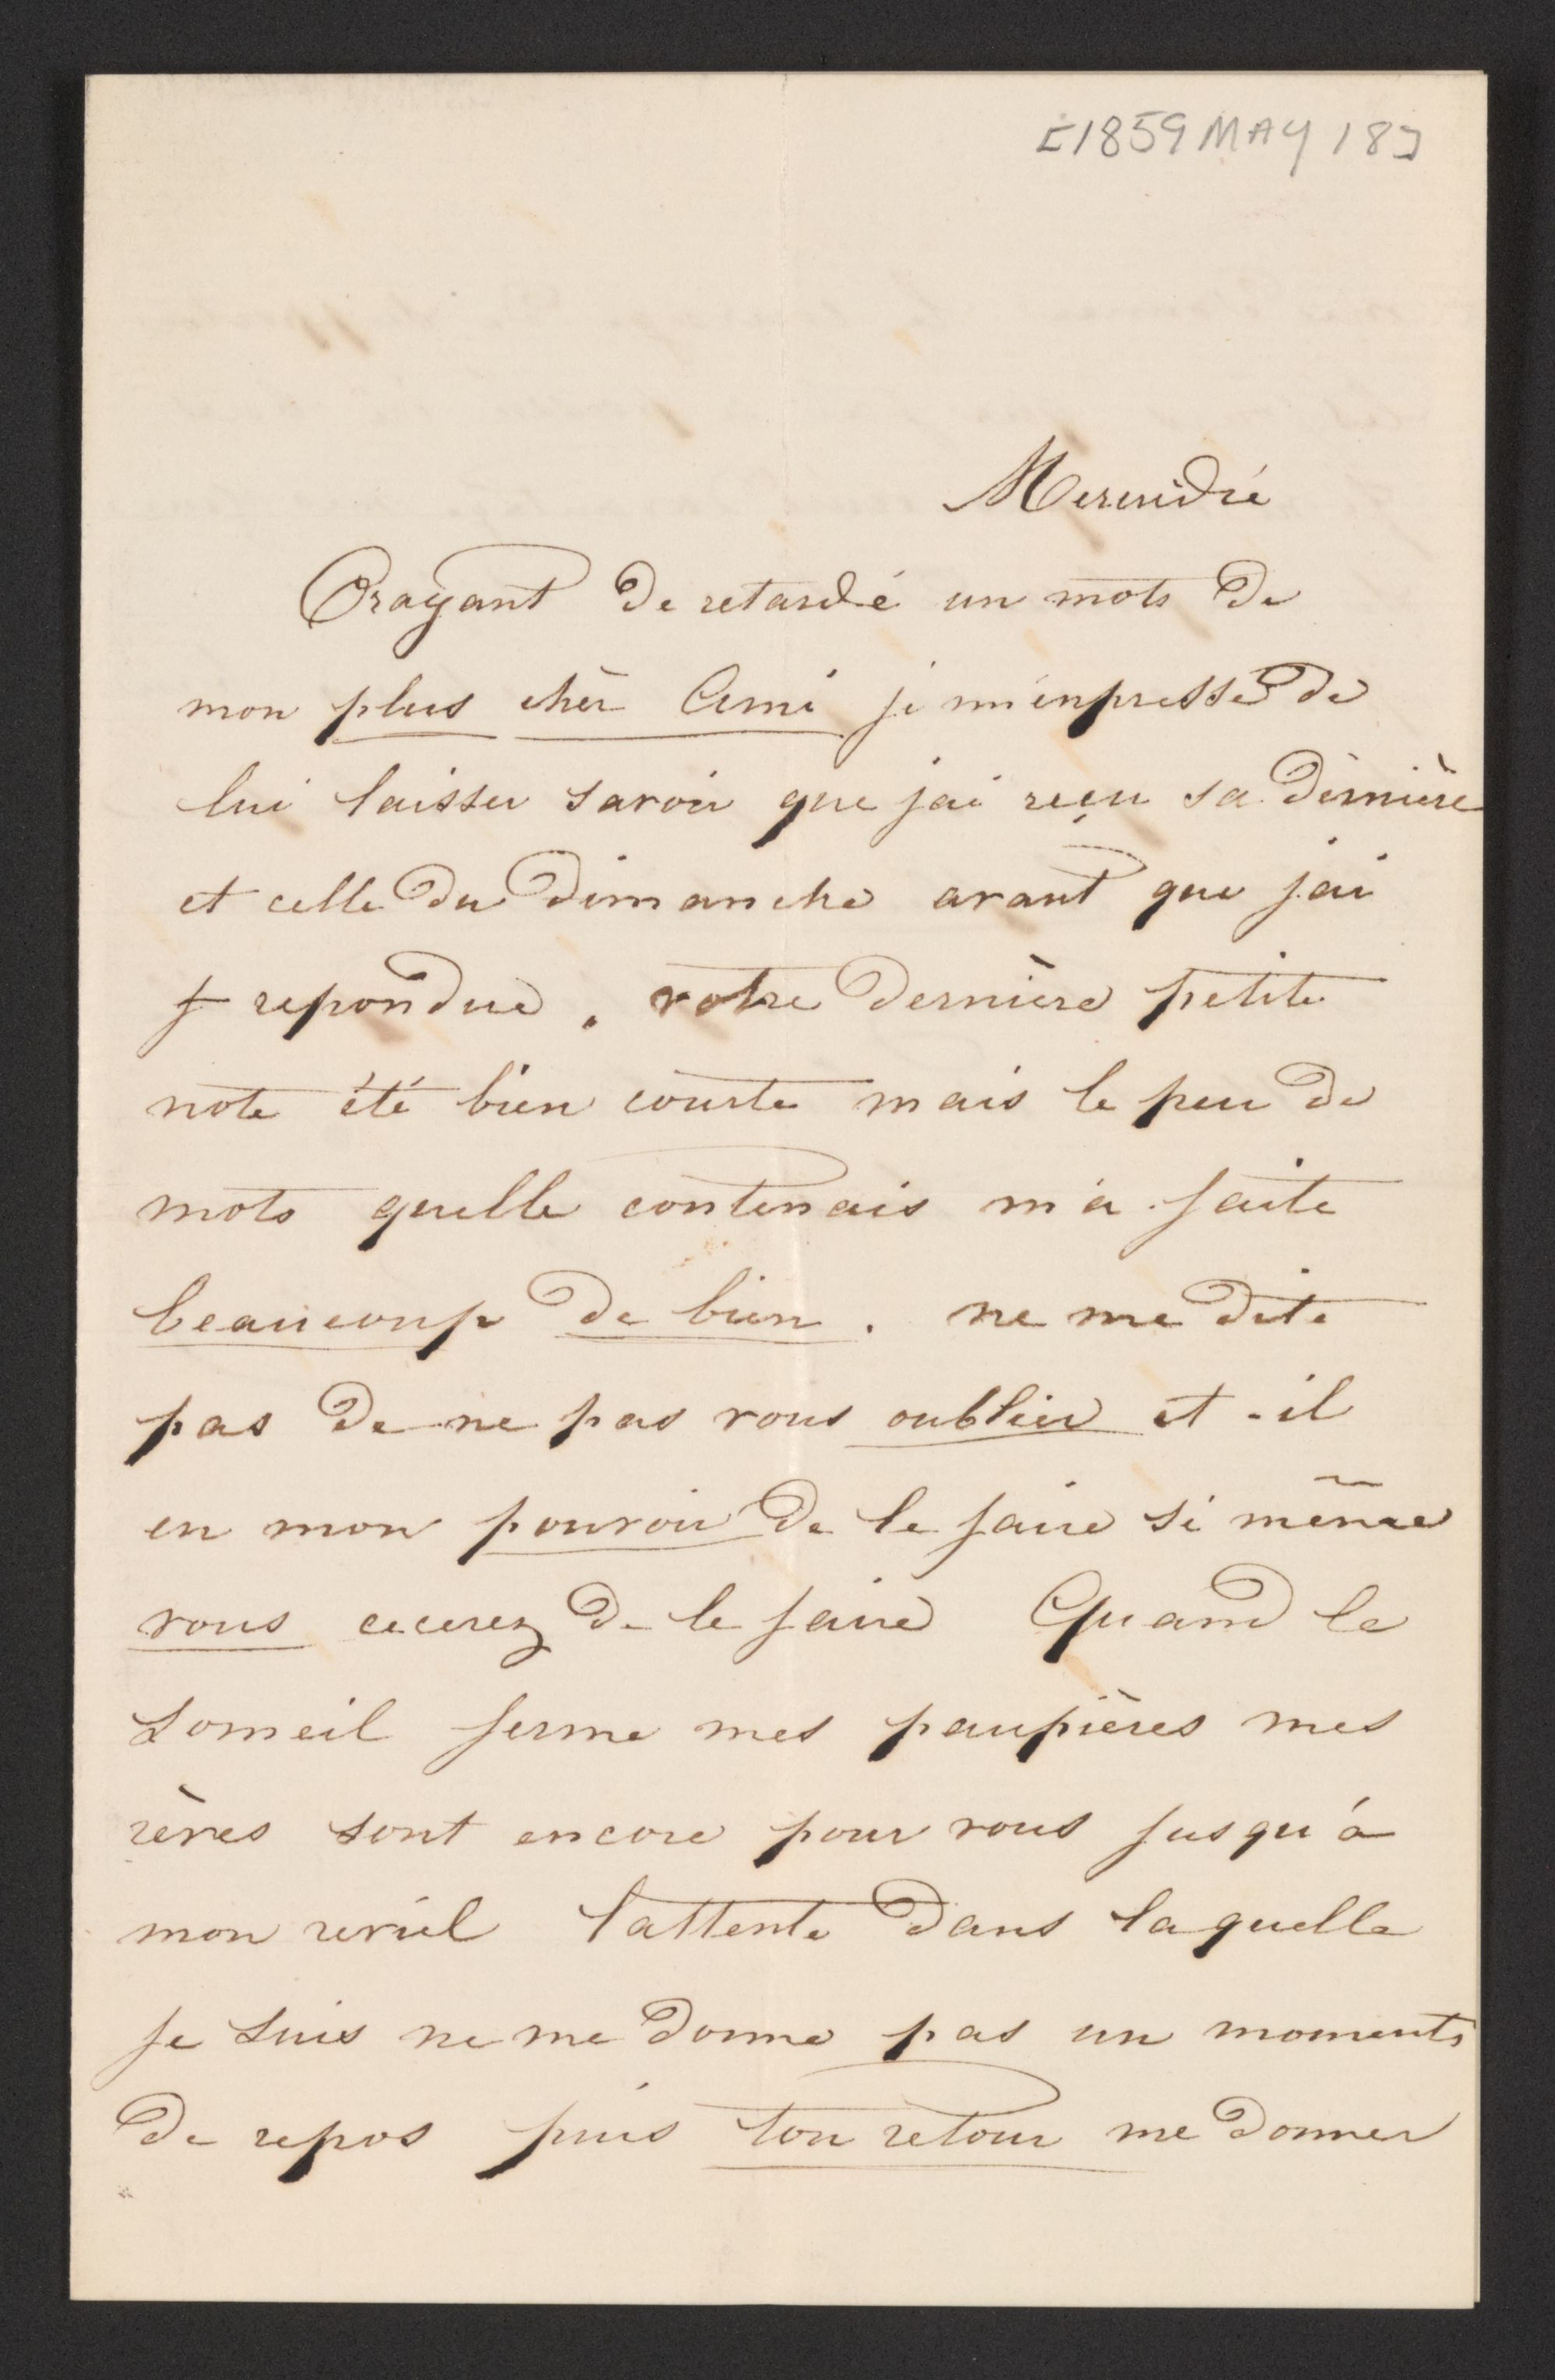 [1859 MAY 18]
Mercridie
Crayant de retardé un mots de
mon plus chèr Ami je m'enpresse de
lui laisser savoir que jai reçu sa dernière
et celle du Dimanche avant que jai
repondue. votre dernière petite
note été bien courte mais le peu de
mots quelle contenais m'a faite
beaucoup de bien. ne me dite
pas de ne pas vous oublier et-il
en mon pouvoir de le faire si même
vous cecerez de le faire Quand le
someil ferme mes paupières mes
rèves sont encore pour vous jusqu'á
mon reviel lattente dans laquelle
je suis ne me donne pas un moments
de repos puis ton retour me donner